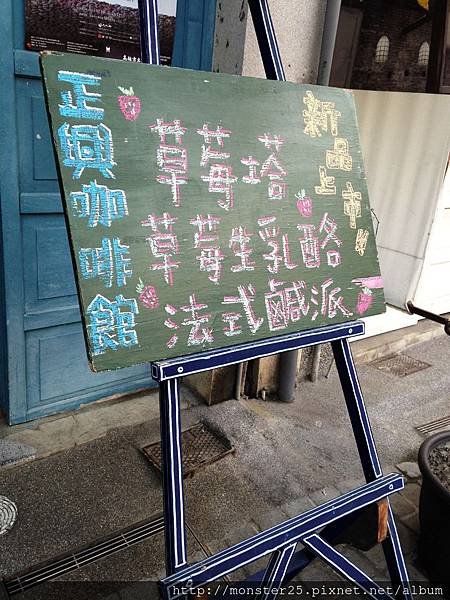 正興咖啡館
新品上市
草莓塔
草莓生乳酪
法式鹹派
http://monster25.pixnet.net/album